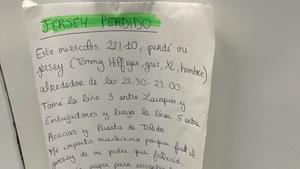 JERSEY PERDIDO
Este miercoles 22/10, perdí mi
jersey (Tommy Hilfiger, gris, XL, hombre)
alrededor de las 22:30-23:00
Tomé la line 3 entre Lavapiés y
Embajadores y luego la line 5 entre
Acacias y Puerta de Toledo
Me importa muchísimo porque fue el
jersey de mi padre que falleció
pagar para